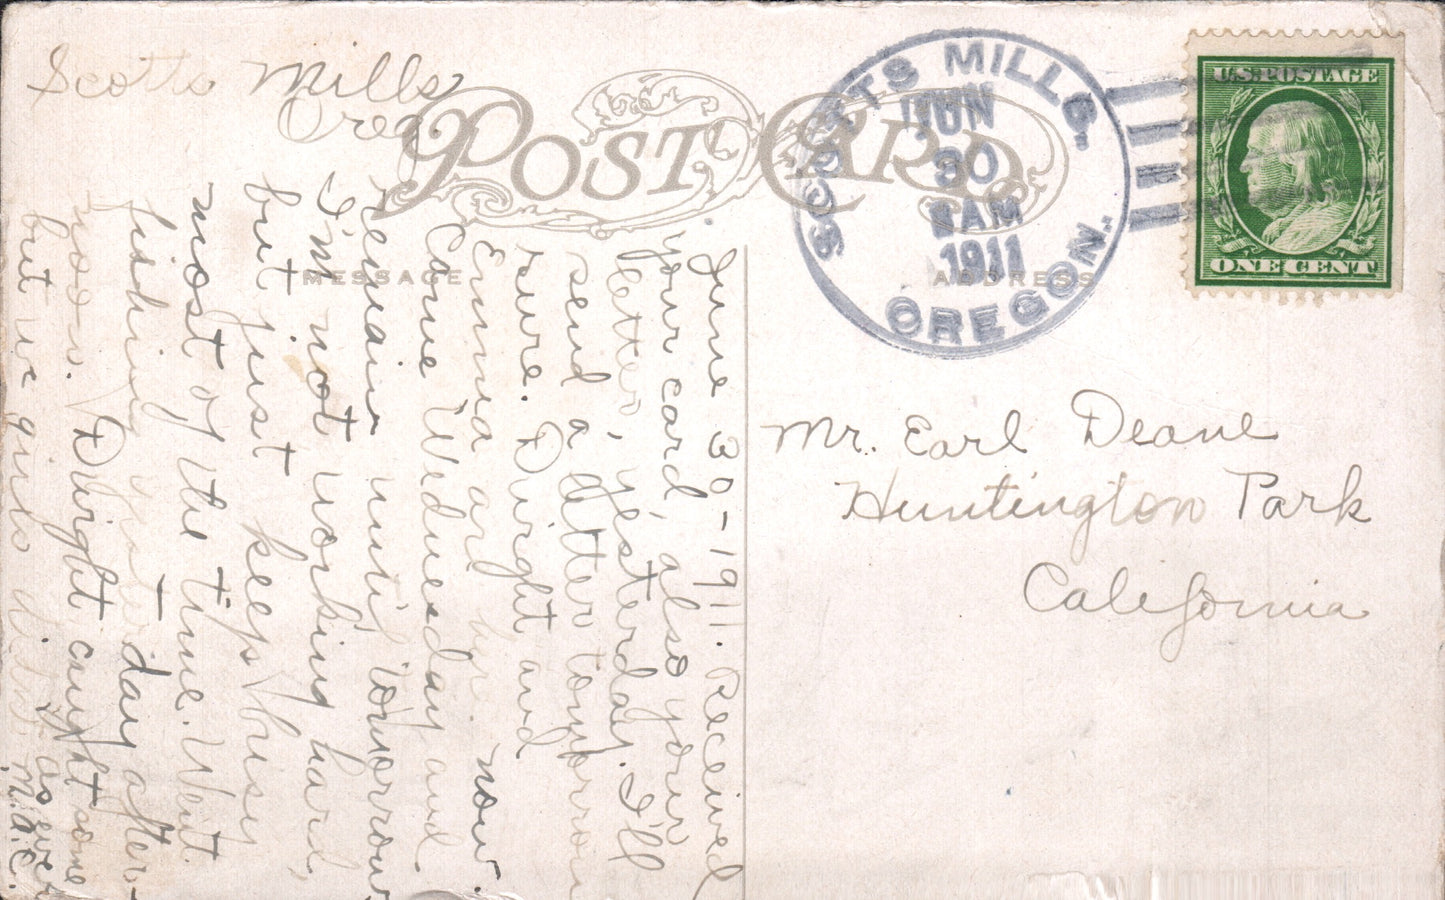 Scotts Mills
Oreg.
POST CARD
MESSAGE
ADDRESS
SCOTTS MILLS,
JUN
30
AM
1911
OREGON.
U.S. POSTAGE
ONE CENT
June 30-1911. Received
your card, also your
letter, yesterday. I'll
send a letter tomorrow
sure. Dwight and
Emma are here now.
Came Wednesday and
remain until tomorrow
I'm not working hard,
but just keep busy
most of the time. Went
fishing yesterday after-
noon. Dwight caught some
but we girls didn't
as ever
M.A.C.
Mr. Earl Deane
Huntington Park
California